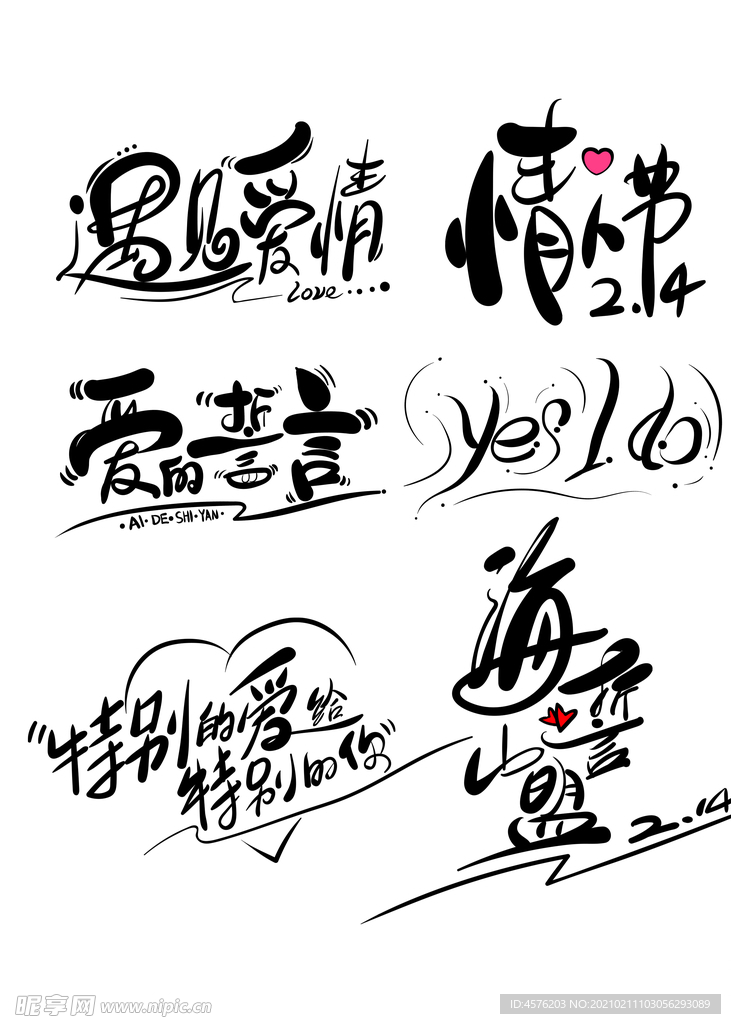 遇见爱情
Love
情人节
2.14
爱的誓言
·AI·DE·SHI·YAN·
yes I do
"特别的爱给
特别的你"
海誓
山盟
2.14
昵享网 www.nipic.cn
ID:4576203 NO:20210211103056293089